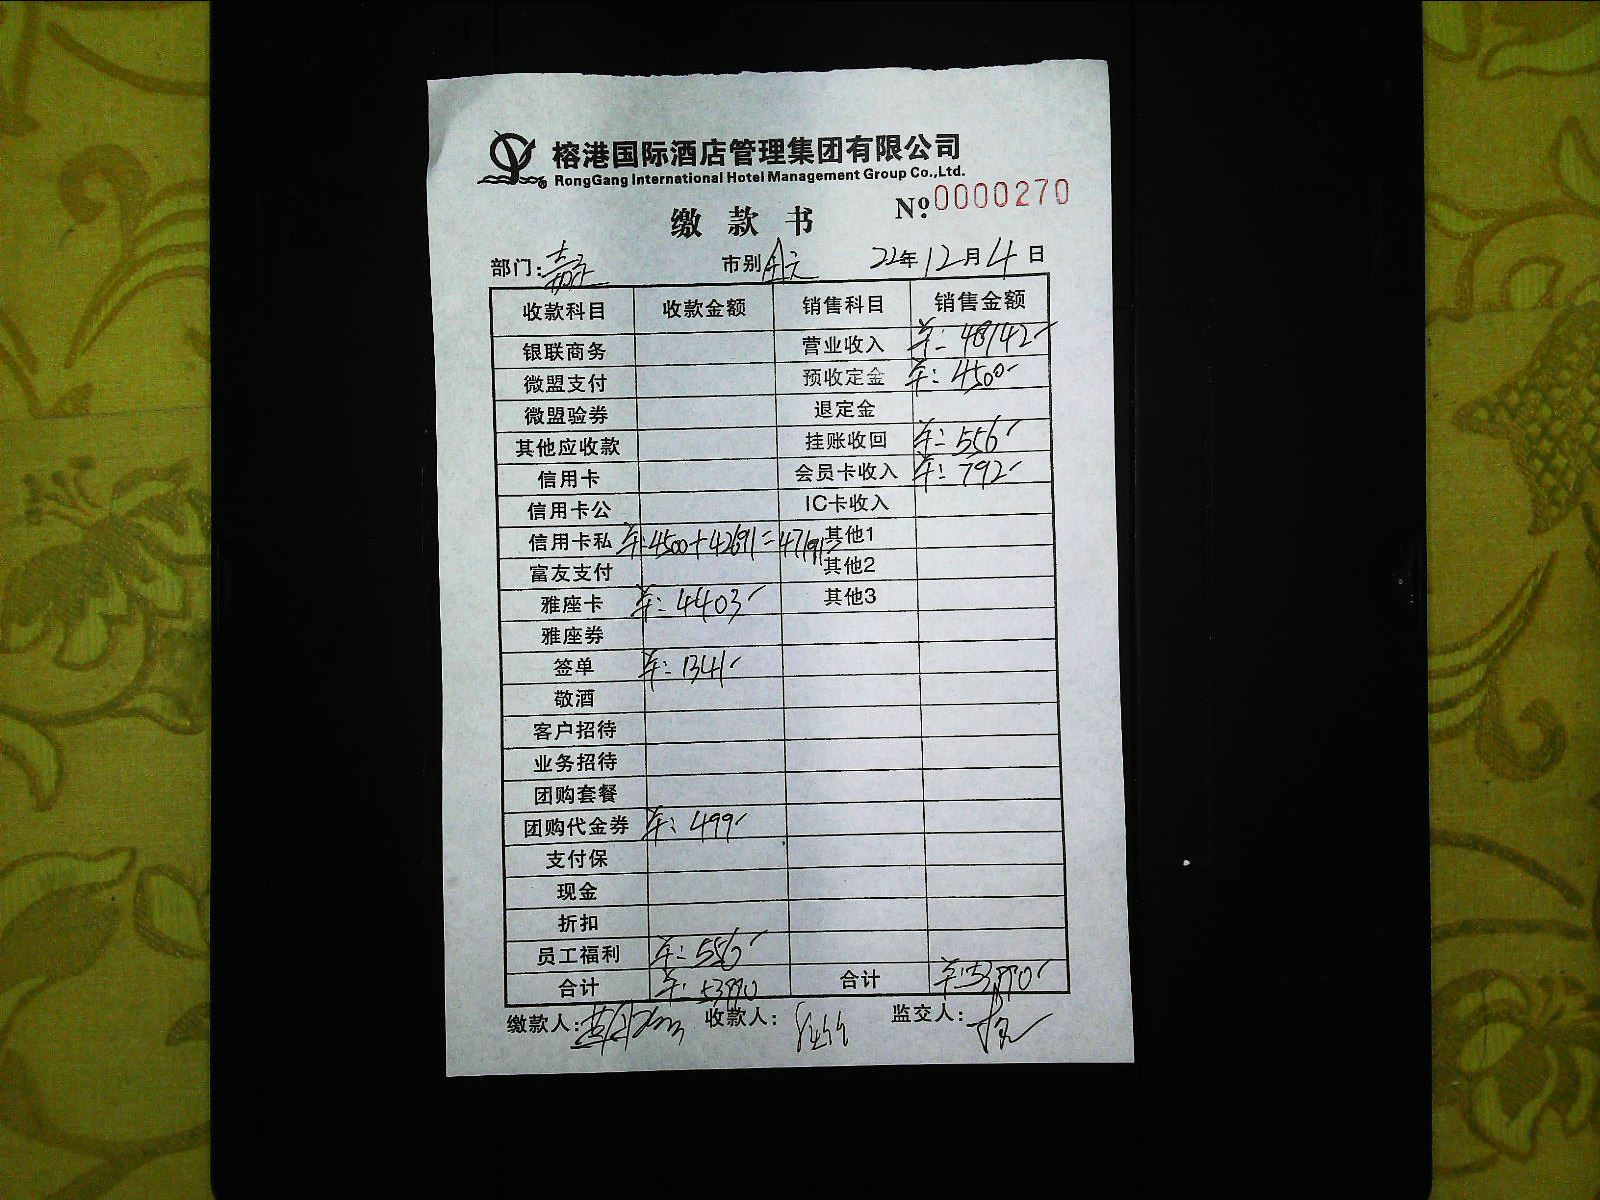 榕港国际酒店管理集团有限公司
RongGang International Hotel Management Group Co.,Ltd.
缴款书 Nº:0000270
部门: 市别 22年12月4日
收款科目 收款金额 销售科目 销售金额
银联商务 营业收入 ¥:48142
微盟支付 预收定金 ¥:4500
微盟验券 退定金
其他应收款 挂账收回 ¥:556
信用卡 会员卡收入 ¥:792
信用卡公 IC卡收入
信用卡私 ¥:4500+42691=47191 其他1
富友支付 其他2
雅座卡 ¥:4403 其他3
雅座券
签单 ¥:1341
敬酒
客户招待
业务招待
团购套餐
团购代金券 ¥:499
支付保
现金
折扣
员工福利 ¥:556
合计 ¥:53990 合计 ¥:53990
缴款人: 收款人: 监交人: